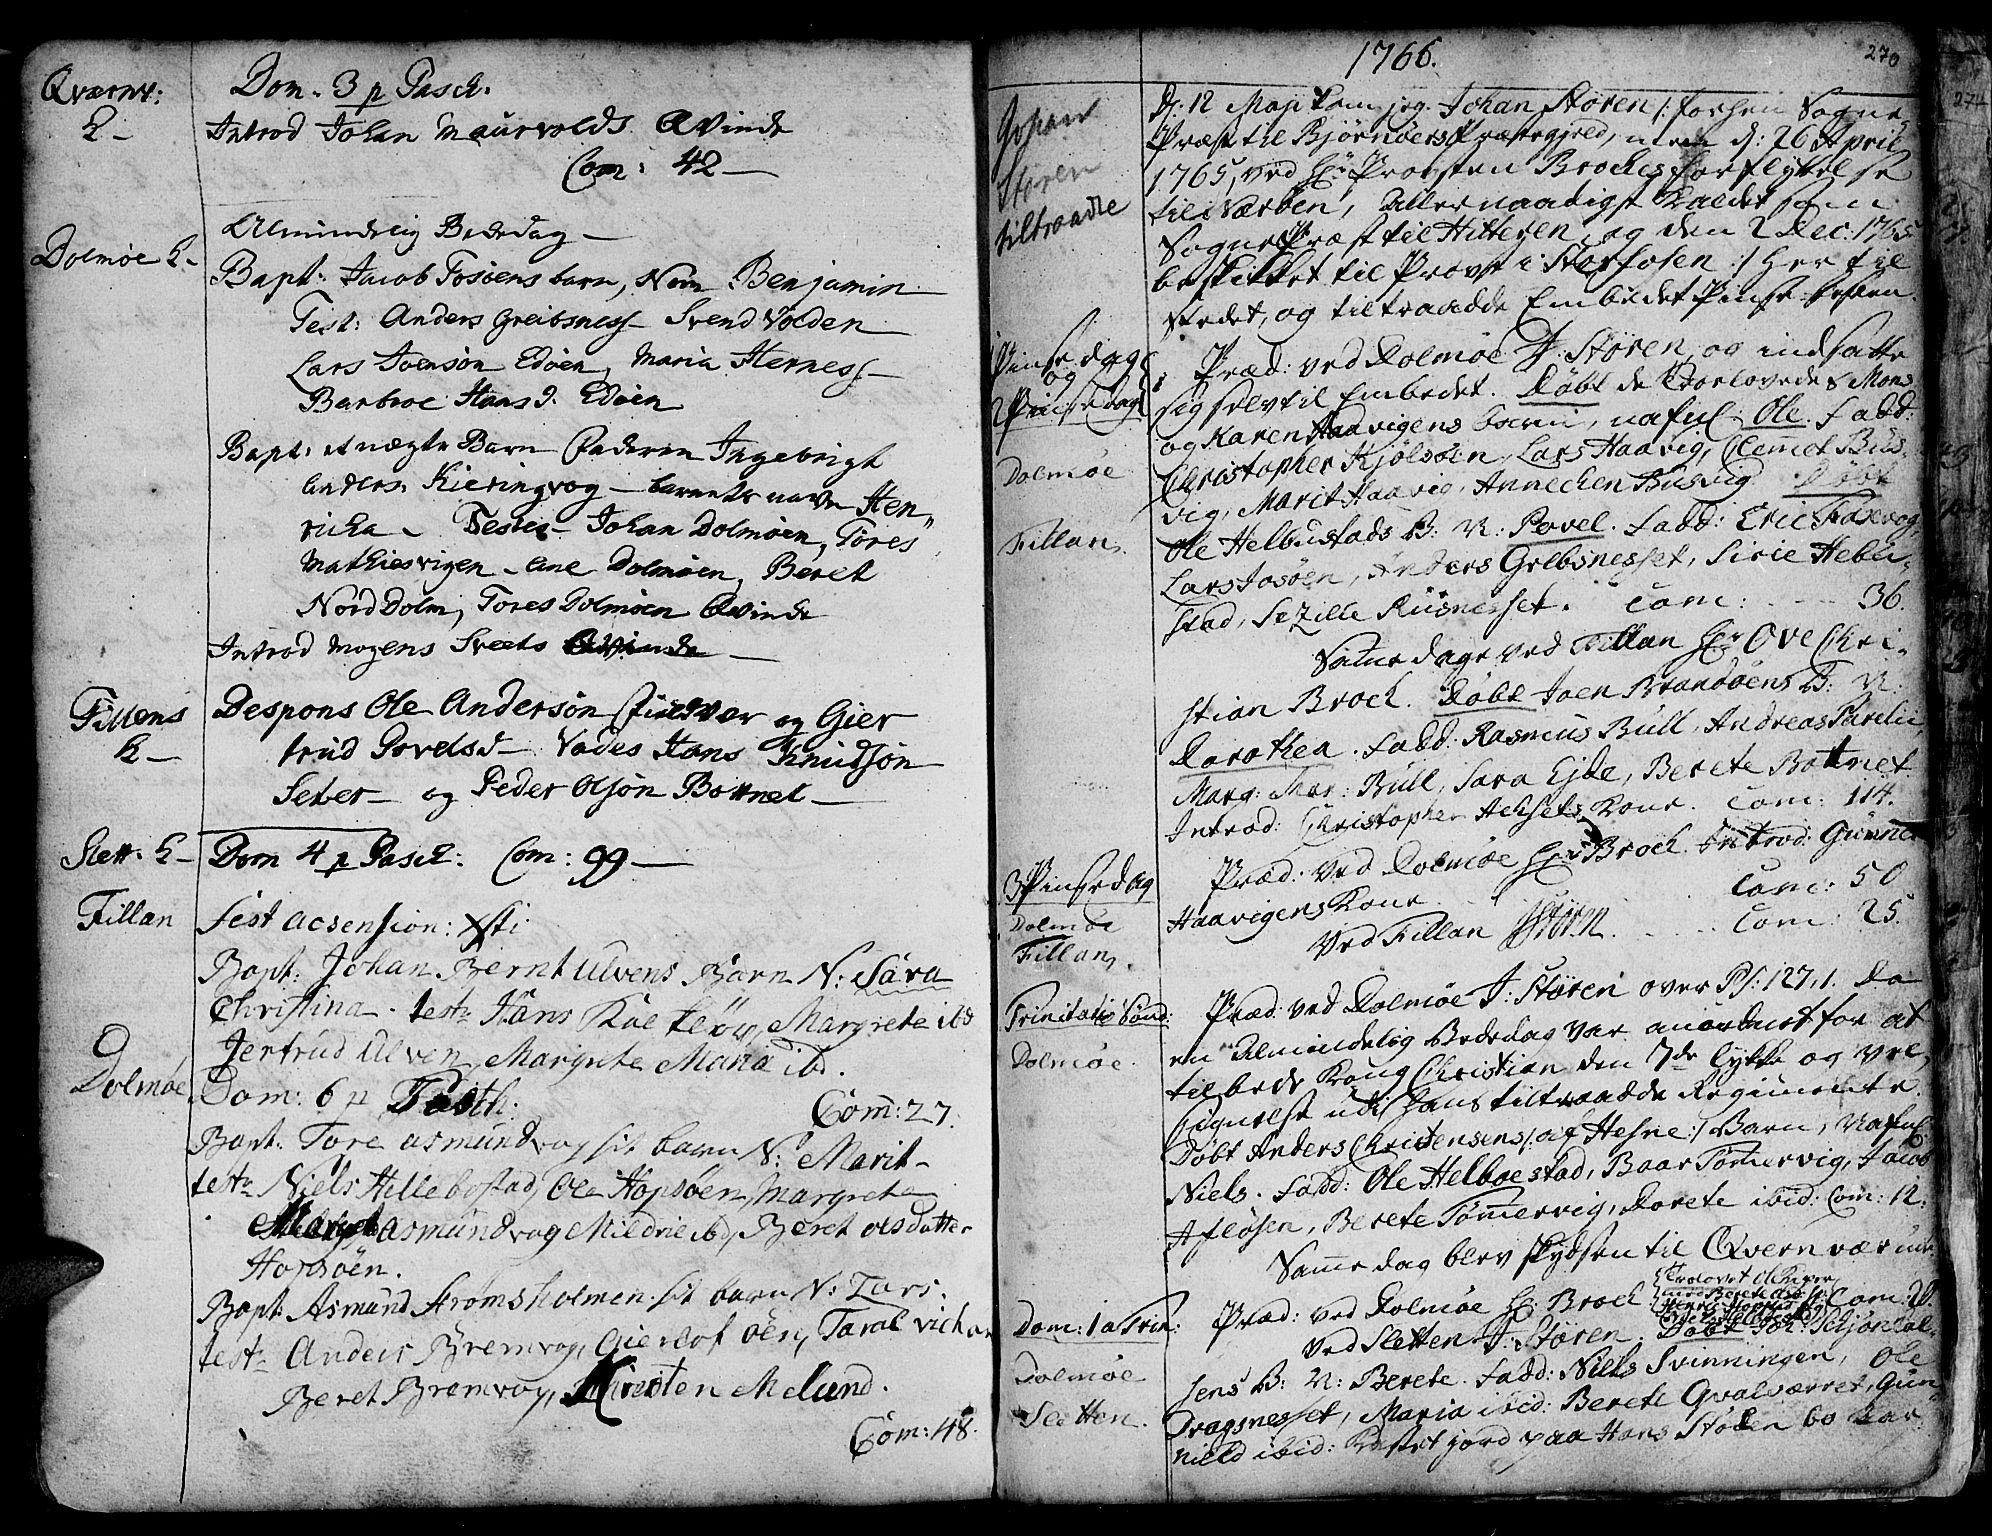 Qværnv:
K-
Dom. 3 p Pasch.
Introd Johan Maurvolds Qvinde
Com: 42 —
Dolmøe K-
Almindelig Bededag —
Bapt: Jacob Fosøens barn, Nom Benjamin
Test: Anders Greibsness - Svend Volden
Lars Joensøn Edøen, Maria Hernes
Barbroe Hans d. Edøen
Bapt: et uægte Barn Faderen Ingebrigt
Anders. Kieringvog - barnets navn Hen,,
richa - Testes - Johan Dolmøen, Tores
Mathiesvigen - Ane Dolmøen, Beret
Nord Dolm, Tores Dolmøen Qvinde
Introd Mogens Sveets Qvinde —
Fillens
K-
Despons Ole Andersøn og Gier
trud Povelsd - Vades Hans Knudsøn
Seter - og Peder Olsøn Bottnet —
Slett. K-
Dom 4 p Pasch: Com: 99 —
Fillan
Fest acsension: Xsti
Bapt: Johan Bernt Ulvens Barn N: Sara
Christina. test: Hans Margrete ibd
Jertrud Ulven, Margrete Maria ibd.
Dolmøe
Dom: 6 p Pasch:
Com: 27.
Bapt. Tore asmundvog sit barn N: Marit
test: Niels Hillebostad, Ole Hopsøen, Margrete
asmundvog Mildrie ibd, Beret olsdatter
Hopsøen.
Bapt: Asmund Strømsholmen sit barn N: Lars.
test: Anders Bremvog, øen,
Beret Bremvog, Kirsten Melund.
Com: 48.
1766.
270
Johan
Støren
tiltraadte
D: 12 Maji kom jeg Johan Støren /: forhen Sogne
Præst til Bjørnøers Præstegield, men d: 26 April
1765, ved Hr: Probsten Broches forflyttelse
til Nærøen, Allernaadigst kaldet som
Sogne Præst til Hitteren, og den 2 Dec: 1765
beskikket til Provst i Størfosen :/ her til
stedet, og tiltraadde Embedet Pinse-festen.
1 Pinsedag
og
2 Pinsedag
Dolmøe
Præd: ved Dolmøe J: Støren, og indsatte
sig selv til Embedet. Døbt de Trolovedes Mons
og Karen Haavigens barn, nafnl. Ole. Fadd:
Christopher Kjølsøen, Lars Haavig, Clemet Bus-
vig, Marit Haavig, Annechen Busvig. Døbt
Fillan.
Ole Helbustads B: N: Povel. Fadd: Eric Faxvog,
Lars Fosøen, Anders Grebsnesset, Sirie Helbu-
stad, Sezille Riisnesset. Com: 36.
Samme dage ved Fillan Hr Ove Chri-
stian Broch. Døbt Joen Brandøens B: N:
Dorothea. Fadd: Rasmus Bull, Andreas Parelii,
Marg: Mar: Bull, Sara Ejde, Berete Bottnet
Introd: Christopher Achsets Kone. Com: 114.
3 Pinsedag
Dolmøe
Fillan.
Præd: ved Dolmøe Hr: Broch. Introd: Gunner
Haavigens Kone. Com: 50
Ved Fillan J: Støren. Com: 25.
Trinitatis Sønd:
Dolmøe.
Præd: ved Dolmøe J: Støren over Ps: 127, 1. Da
en Almindelig Bededag var anordnet for at
tilbede Kong Christian den 7de lykke og vel-
signelse udi Hans tiltrædde Regimente.
Døbt Anders Christensens /: af Hefne :/ Barn, nafnl.
Niels. Fadd: Ole Helboestad, Baar Tømmervig, Jacob
Afløsen, Berete Tømmervig, Dorete ibid: Com: 12.
Samme dag blev skydsen til Qvernvær
Dom: 1 a Trin:
Dolmøe
Sletten.
Præd: ved Dolmøe Hr: Broch Com: 20.
Ved Sletten J: Støren. Døbt
sens B: N: Berete. Fadd: Niels Svinningen, Ole
Dragsnesset, Maria ibid: Berete Qvalværret, Gun-
nild ibid: Kastet jord paa Hans Støten